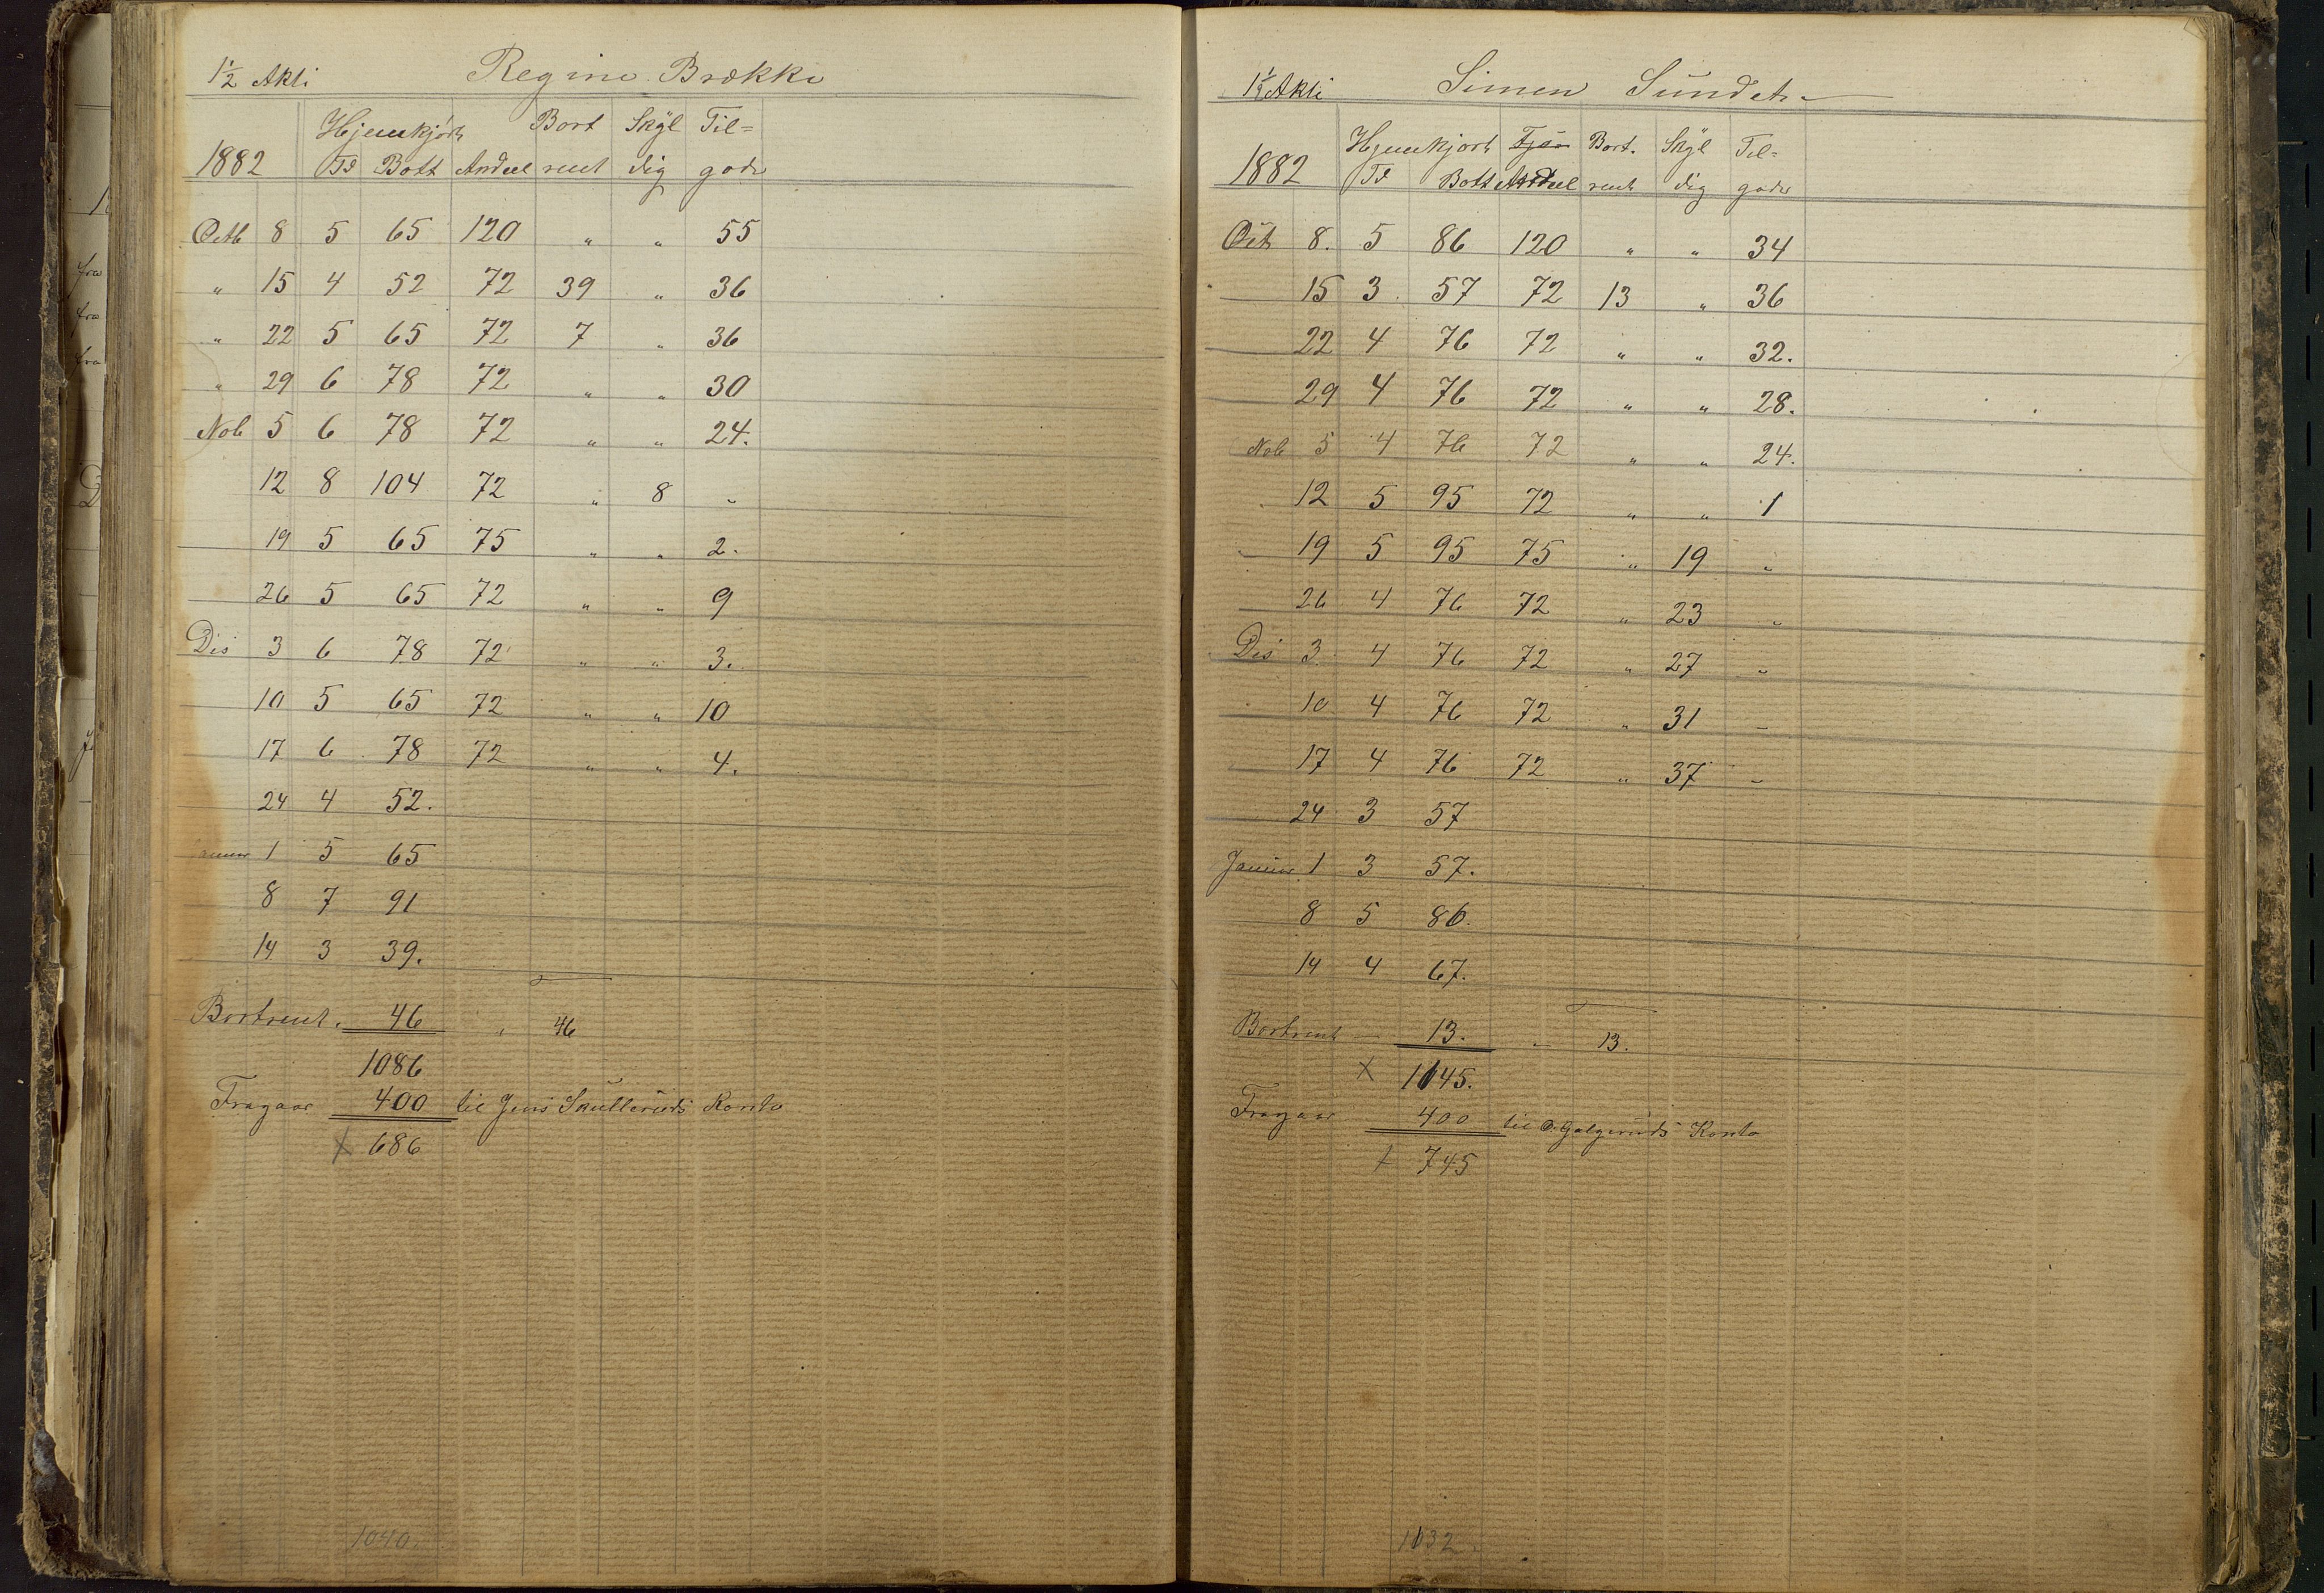 1½ Akti Regine Brække
Hjemkjørt Bort Skyl Til=
1882 Td Bott Andeel rent dig gode
Octb 8 5 65 120 " " 55
" 15 4 52 72 39 " 36
" 22 5 65 72 7 " 36
" 29 6 78 72 " " 30
Nob 5 6 78 72 " " 24.
12 8 104 72 " 8 "
19 5 65 75 " " 2.
26 5 65 72 " " 9
Dis 3 6 78 72 " " 3.
10 5 65 72 " " 10
17 6 78 72 " " 4.
24 4 52.
Januar 1 5 65
8 7 91
14 3 39.
Bortrent. 46 " 46
1086
Fragaar 400 til Jens Skullerüds Konto
X 686
1040.
1½ Akti Simen Sündet
Hjemkjørt Bort. Skyl Til=
1882 Td Bott Andeel rent dig gode
Oct 8. 5 86 120 " " 34
15 3. 57 72 13 " 36
22 4 76 72 " " 32.
29 4 76 72 " " 28.
Nob 5 4 76 72 " " 24.
12 5 95 72 " " 1
19 5 95 75 " 19 "
26 4 76 72 " 23 "
Dis 3. 4 76 72 " 27 "
10 4 76 72 " 31 "
17 4 76 72 " 37 "
24 3 57
Januar 1 3 57.
8 5 86.
14 4 67.
Bortrent 13. " 13.
X 1145.
Fragaar 400 til Konto
X 745
1132.
fra
fra
fra